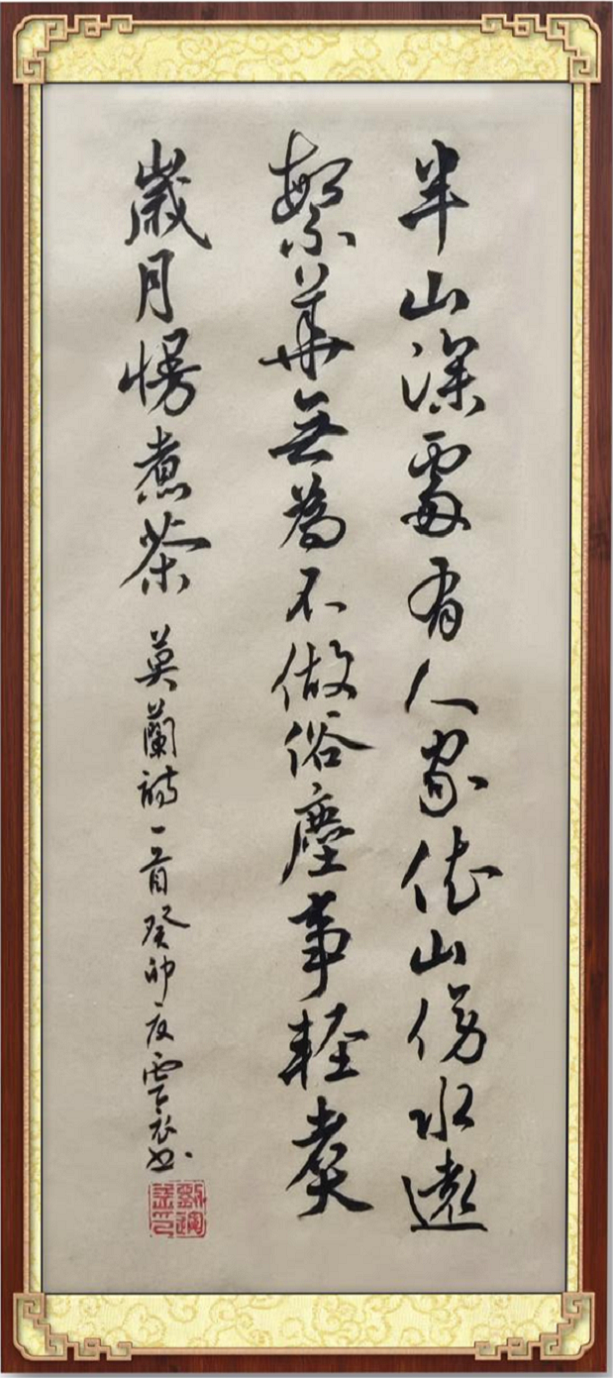 半山深處有人家依山傍水遠
繁華無為不做俗塵事輕
歲月慢煮茶
莫蘭詩一首癸卯夏雲書